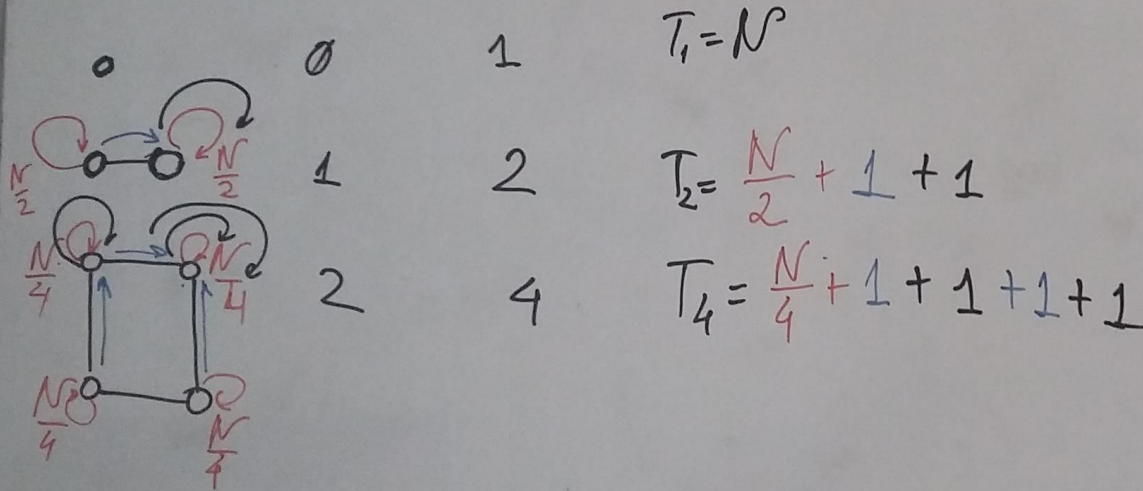 0 1 T₁ = N
N/2 N/2 1 2 T₂ = N/2 + 1 + 1
N/4 N/4 2 4 T₄ = N/4 + 1 + 1 + 1 + 1
N/4 N/4